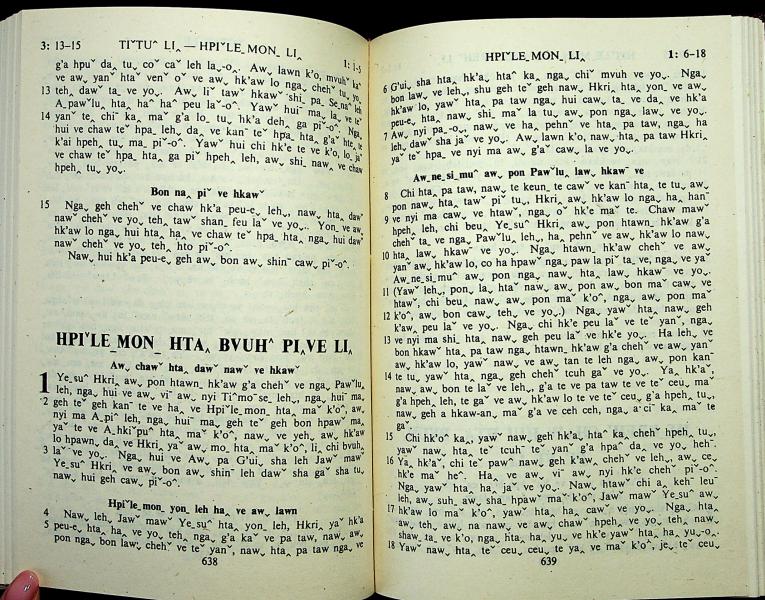 3: 13–15 TIˇTUˆ LIꞈ — HPIˇLE_MON_ LIꞈ 1: 1-5
g'a hpuˇ da˰ tu˰ coˇ caˇ leh la˰-o˰. Aw˰ lawn k'o˰ mvuhˆ kaˇ
ve aw˰ yanˇ htaˇ venˇ oˇ ve aw˰ hk'aw lo nga˰ cheh˰ tu˰ yo˰
13 teh˰ dawˇ ta_ ve yo˰. Aw˰ liˇ tawˇ hkawˇ shi_ pa_ Se_naˆ leh
A_pawˇluꞈ htaꞈ haˆ haˆ peu laˇ-oˆ. Yawˇ huiˇ ma˰ la˰ ve teˇ
14 yanˇ teꞈ chiˇ kaꞈ maˇ g'a lo_ tu˰ hk'a deh˰ ga piˇ-oˆ. Nga˰
hui ve chaw teˇ hpa_ leh˰ daꞈ ve kanˇ teˇ hpa_ htaꞈ g'aˇ hteꞈ
k'ai hpeh˰ tu˰ ma_ piˇ-oˆ. Yawˇ hui chi hk'e te ve k'o˰ lo_ jaˇ
ve chaw teˇ hpa_ htaꞈ ga piˇ hpeh˰ leh˰ aw˰ shi_ naw˰ ve chaw
hpeh˰ tu˰ yo˰.
Bon naꞈ piˇ ve hkawˇ
15 Nga˰ geh chehˇ ve chaw hk'a peu-e˰ leh˰, naw˰ htaꞈ dawˇ
nawˇ chehˇ ve yo˰ tehꞈ tawˇ shanꞈ feu laˇ ve yo˰. Yon˰ ve aw˰
hk'aw lo nga˰ hui htaꞈ haꞈ ve chaw teˇ hpa_ htaꞈ nga˰ hui dawˇ
nawˇ chehˇ ve yo˰ tehꞈ hto piˇ-oˆ.
Naw˰ hui hk'a peu-e˰ geh aw˰ bon aw˰ shinˉ caw˰ piˇ-oˆ.
HPIˇLE_MON_ HTAꞈ BVUHˆ PI˰VE LIꞈ
Aw˰ chawˇ htaꞈ dawˇ nawˇ ve hkawˇ
1 Ye_suˆ Hkri˰ aw˰ pon htawn_ hk'aw g'a chehˇ ve nga˰ Pawˇluꞈ
leh˰ nga˰ hui ve aw˰ viˇ aw˰ nyi Tiˆmoˇse_ leh˰, nga˰ huiˇ ma˰
2 geh teˇ geh kanˇ te ve ha˰ ve Hpiˇle_mon_ htaꞈ maˇ k'oˆ, aw˰
nyi ma A_piˇ leh˰ nga˰ huiˇ ma˰ geh teˇ geh bon hpawˇ ma˰
yaˇ te ve A_hkiˇpuˆ htaꞈ maˇ k'oˆ, naw˰ ve yeh˰ aw˰ hk'aw
lo hpawn˰ da˰ ve Hkri˰ yaˇ aw˰ mo˰ htaꞈ maˇ k'oˆ, liꞈ chi bvuh˰
3 laˇ ve yo˰. Nga˰ hui ve Aw˰ pa G'ui˰ sha leh Jawˇ mawˇ
Ye_suˆ Hkri˰ ve aw˰ bon aw˰ shinˉ leh dawˇ sha gaˇ sha tu˰
naw˰ hui geh caw˰ piˇ-oˆ.
Hpiˇle_mon_ yon_ leh ha˰ ve aw˰ lawn
4 Naw˰ leh˰ Jawˇ mawˇ Ye_suˆ htaꞈ yon_ leh˰ Hkri˰ yaˇ hk'a
5 peu-e˰ htaꞈ ha˰ ve yo˰ tehꞈ nga˰ g'a kaˇ ve pa taw˰ naw˰ aw˰
pon nga˰ bon law˰ chehˇ ve teˇ yanˇ, naw˰ htaꞈ pa taw˰ nga˰ ve
638
HPIˇLE_MON_ LIꞈ 1: 6–18
6 G'ui˰ sha htaꞈ hk'a˰ htaˆ ka˰ nga˰ chiˇ mvuh ve yo˰. Nga˰
bon law˰ ve leh˰, shu geh teˇ geh naw˰ Hkri˰ htaꞈ yon_ ve aw˰
hk'aw lo˰ yawˇ htaꞈ pa taw nga˰ hui caw˰ ta_ ve daꞈ ve hk'a
peu-e˰ htaꞈ naw˰ shi_ maˇ la tu˰ aw˰ pon nga˰ law˰ ve yo˰.
7 Aw˰ nyi pa_-o˰, naw˰ ve ha˰ pehnˇ ve htaꞈ pa taw˰ nga˰ ha
leh˰ dawˇ sha jaˇ ve yo˰. Aw˰ lawn k'o˰ naw˰ htaꞈ pa taw Hkri˰
yaˇ teˇ hpa_ ve nyi ma aw˰ g'aˇ caw˰ la ve yo˰.
Aw˰ne_si_muˆ aw˰ pon Pawˇluꞈ law˰ hkawˇ ve
8 Chi htaꞈ pa taw˰ naw˰ te keun_ te cawˇ ve kanˇ htaꞈ te tu˰ aw˰
pon naw˰ htaꞈ tawˇ piˇ tu˰, Hkri˰ aw˰ hk'aw lo nga˰ haꞈ hanˉ
9 ve nyi ma caw˰ ve htaw˰ nga˰ oˇ hk'e maˇ te. Chaw mawˇ
hpeh˰ leh˰ chi beu˰ Ye_suˆ Hkri˰ aw˰ pon htawn_ hk'aw g'a
chehˇ ta_ ve nga˰ Pawˇluꞈ leh˰, ha˰ pehnˇ ve aw˰ hk'aw lo naw˰
10 htaꞈ law˰ hkawˇ ve yo˰. Nga˰ htawn_ hk'aw chehˇ ve aw˰
yanˇ aw˰ hk'aw lo˰ co ha hpawˇ nga˰ paw la piˇ ta_ ve˰ nga˰ ve yaˇ
Aw˰ne_si_muˆ aw˰ pon nga˰ naw˰ htaꞈ law˰ hkawˇ ve yo˰.
11 (Yawˇ leh˰, pon_ laꞈ htaˇ naw˰ aw˰ pon aw˰ bon maˇ caw˰ ve
htaw˰ chi beu˰ naw˰ aw˰ pon maˇ k'oˆ, nga˰ aw˰ pon maˇ
12 k'oˆ, aw˰ bon cawˇ tehꞈ ve yo˰.) Nga˰ yawˇ htaꞈ naw˰ geh
k'aw˰ peu laˇ ve yo˰. Nga˰ chi hk'e peu laˇ ve teˇ yanˇ, nga˰
13 ve nyi ma shi_ htaꞈ naw˰ geh peu laˇ ve hk'e yo˰. Ha leh˰ ve
bon hkawˇ htaꞈ pa taw nga˰ htawn_ hk'aw g'a chehˇ ve aw˰ yanˇ
aw˰ hk'aw lo˰ yawˇ naw˰ ve aw˰ tan te leh nga˰ aw˰ pon kanˇ
14 te tu˰ yawˇ htaꞈ nga˰ geh chehˇ tcuh gaˇ ve yo˰. Yaꞈ hk'aˇ,
naw˰ aw˰ bon te laˇ ve leh˰, g'a te ve pa taw te ve teˇ ceu˰ maˇ
g'a hpeh˰ leh˰ te gaˇ ve aw˰ hk'aw lo te ve teˇ ceu˰ g'a hpeh˰ tu˰
naw˰ geh a hkaw-an˰ maˇ g'a ve ceh ceh˰ nga˰ aˇciˇ kaꞈ maˇ te
ga
15 Chi hk'oˆ ka˰ yawˇ naw˰ geh hk'a˰ htaˆ ka˰ chehˇ hpeh˰ tu˰,
yawˇ naw˰ htaꞈ teˇ tcuhˉ teˇ yanˇ g'a hpaˇ daꞈ ve yo˰ hehˉ.
16 Yaꞈ hk'aˇ, chiˇ teˇ pawˆ naw˰ geh k'aw˰ chehˇ ve leh˰, aw˰ ce˰
hk'e maˇ heˆ. Ha˰ ve aw˰ viˇ aw˰ nyi hk'e chehˇ piˇ-oˆ.
Nga˰ yawˇ htaꞈ ha˰ jaˇ ve yo˰. Naw˰ htawˇ chi a_ keh˰ leuˉ
leh˰ aw˰ suh_ aw˰ sha_ hpawˇ maˇ k'oˆ, Jawˇ mawˇ Ye_suˆ aw˰
17 hk'aw lo maˇ k'oˆ, yawˇ htaꞈ ha˰ cawˇ ve yo˰. Nga˰ htaꞈ
aw˰ teh˰ aw˰ na naw˰ ve aw˰ chawˇ hpeh˰ ve yo˰ tehꞈ naw˰
shaw˰ ta_ ve k'o˰ nga˰ htaꞈ haꞈ yu˰ ve hk'e yawˇ htaꞈ haꞈ yu˰-o˰.
18 Yawˇ naw˰ htaꞈ teˇ ceu˰ ceu˰ te yaꞈ ve maˇ k'oˆ, je˰ teˇ ceu˰
639